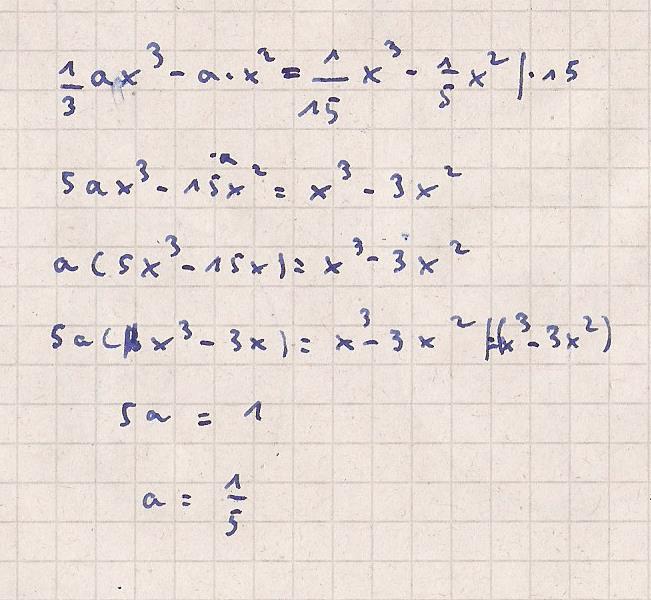 1/3 ax³ - a·x² = 1/15 x³ - 1/5 x² | ·15
5ax³ - 15·a x² = x³ - 3x²
a(5x³ - 15x) = x³ - 3x²
5a(x³ - 3x) = x³ - 3x² | :(x³ - 3x²)
5a = 1
a = 1/5